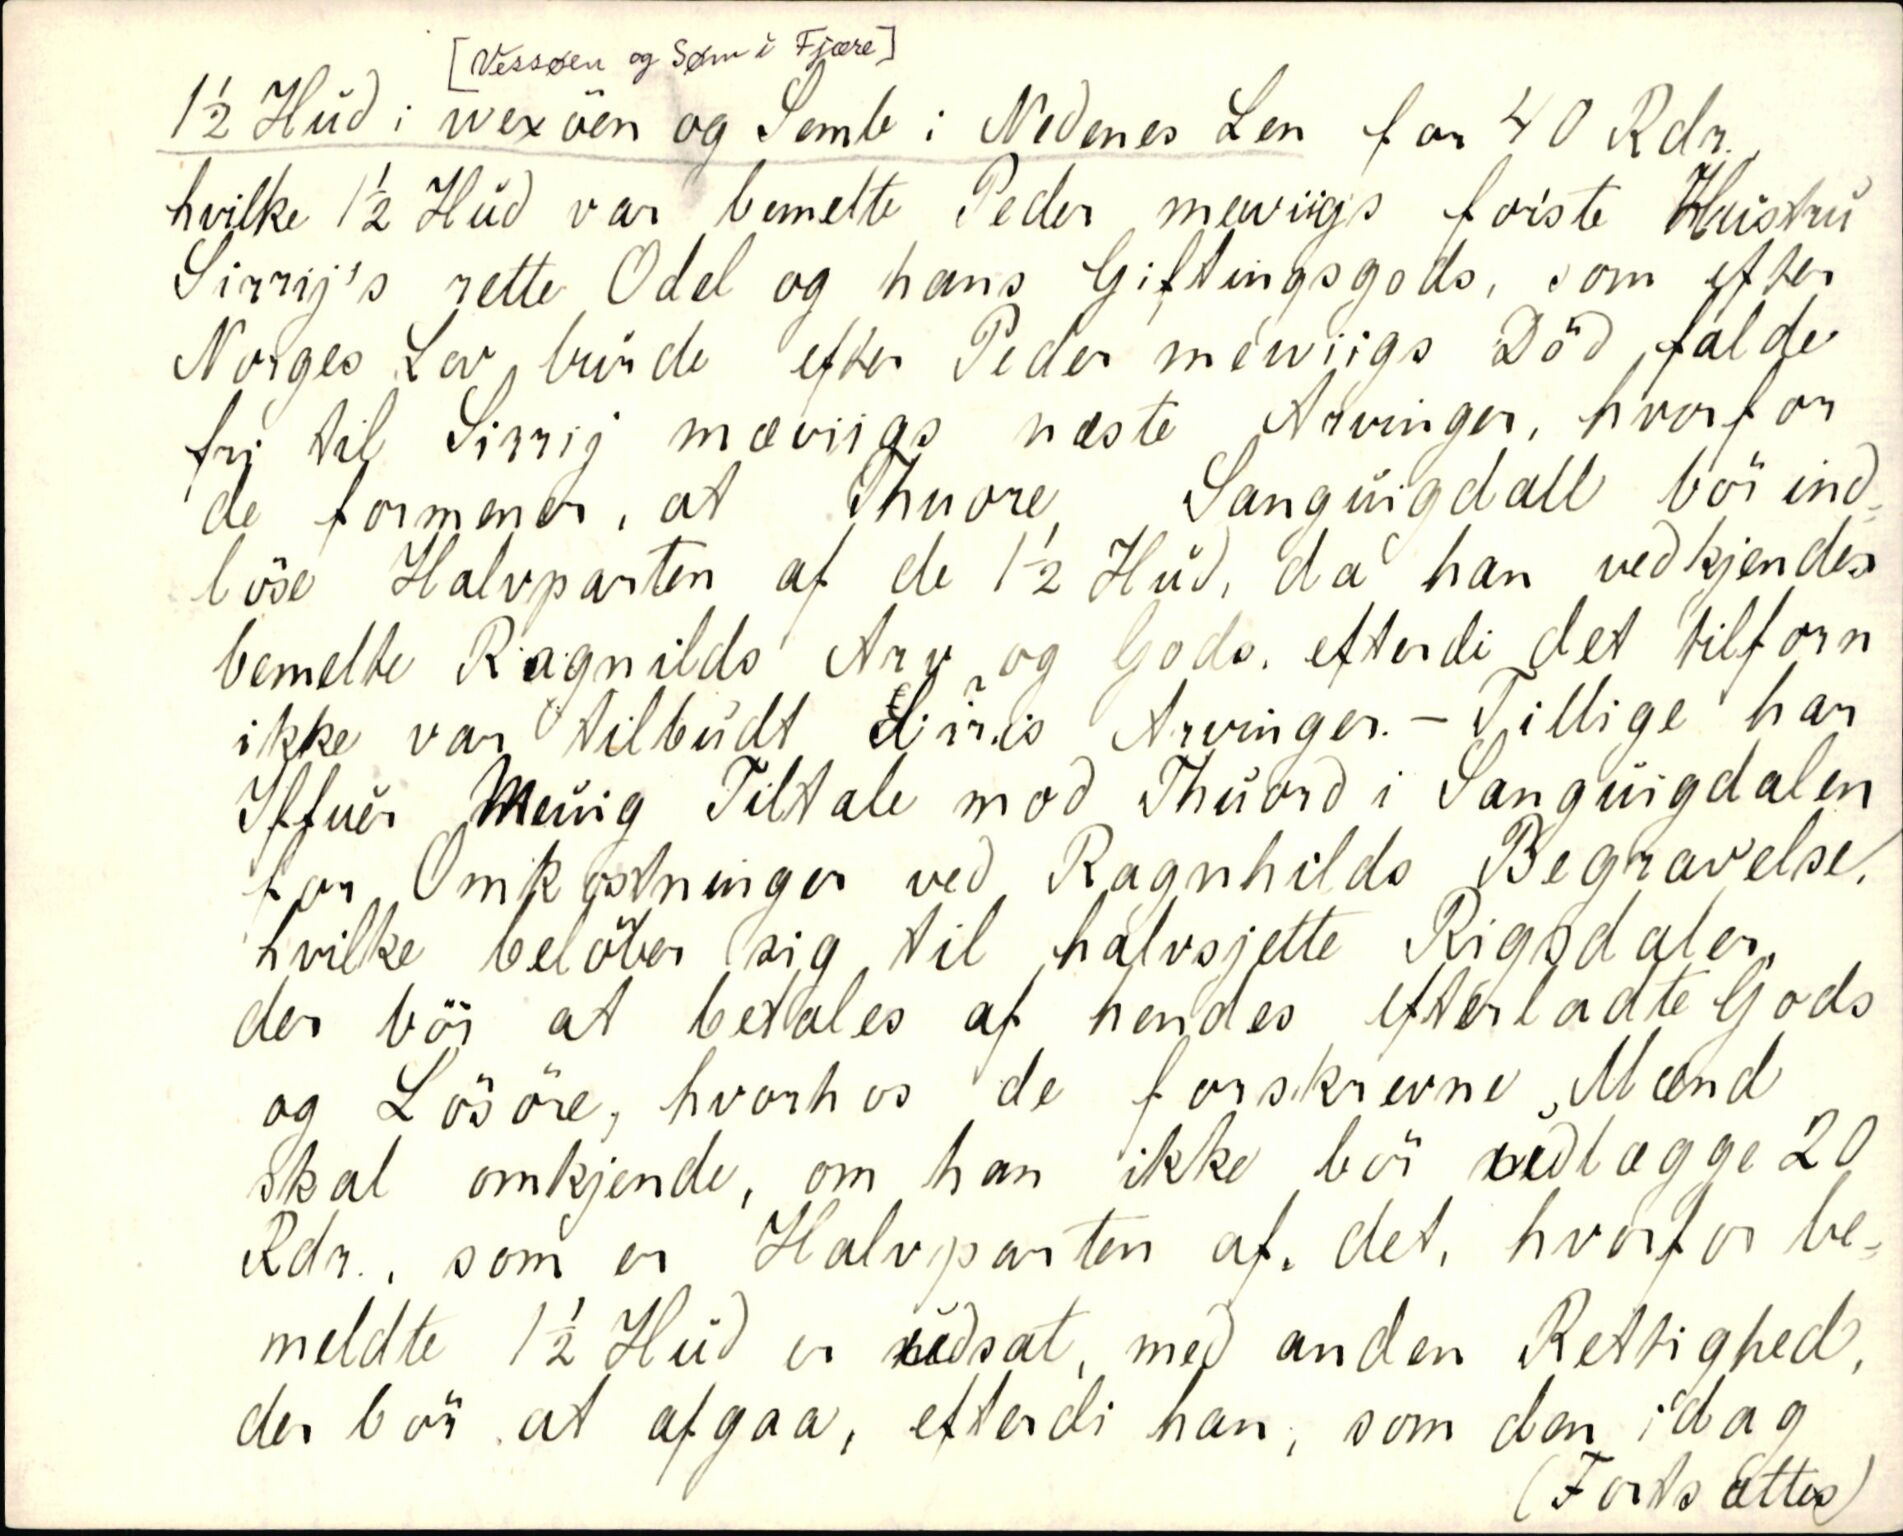 [Vessøen og Søm i Fjære]
1½ Hŭd i wexöen og Semb i Nedenes Len for 40 Rdr.,
hvilke 1½ Hŭd var bemelte Peder mæwiigs förste Hŭstrŭ
Sirrij's rette Odel og hans Giftingsgods, som efter
Norges Lov bŭrde efter Peder mæwiigs Död falde
fri til Sirrij mæviigs næste Arvinger, hvorfor
de formener, at Thuore Sangŭigdall bör ind-
löse Halvparten af de 1½ Hŭd, da han vedkjendes
bemelte Ragnilds Arv og Gods, efterdi det tilforn
ikke var tilbŭdt Siris Arvinger. – Tillige har
Iffuer Meŭig Tiltale mod Thŭord i Sangŭigdalen
for Omkostninger ved Ragnhilds Begravelse,
hvilke belöber sig til halvsjette Rigsdaler,
der bör at betales af hendes efterladte Gods
og Lösöre, hvorhos de forskrevne Mænd
skal omkjende, om han ikke bör nedlægge 20
Rdr., som er Halvparten af det, hvorfor be-
meldte 1½ Hŭd er ŭdsat, med anden Rettighed,
der bör at afgaa, efterdi han, som den idag
(Fortsættes)